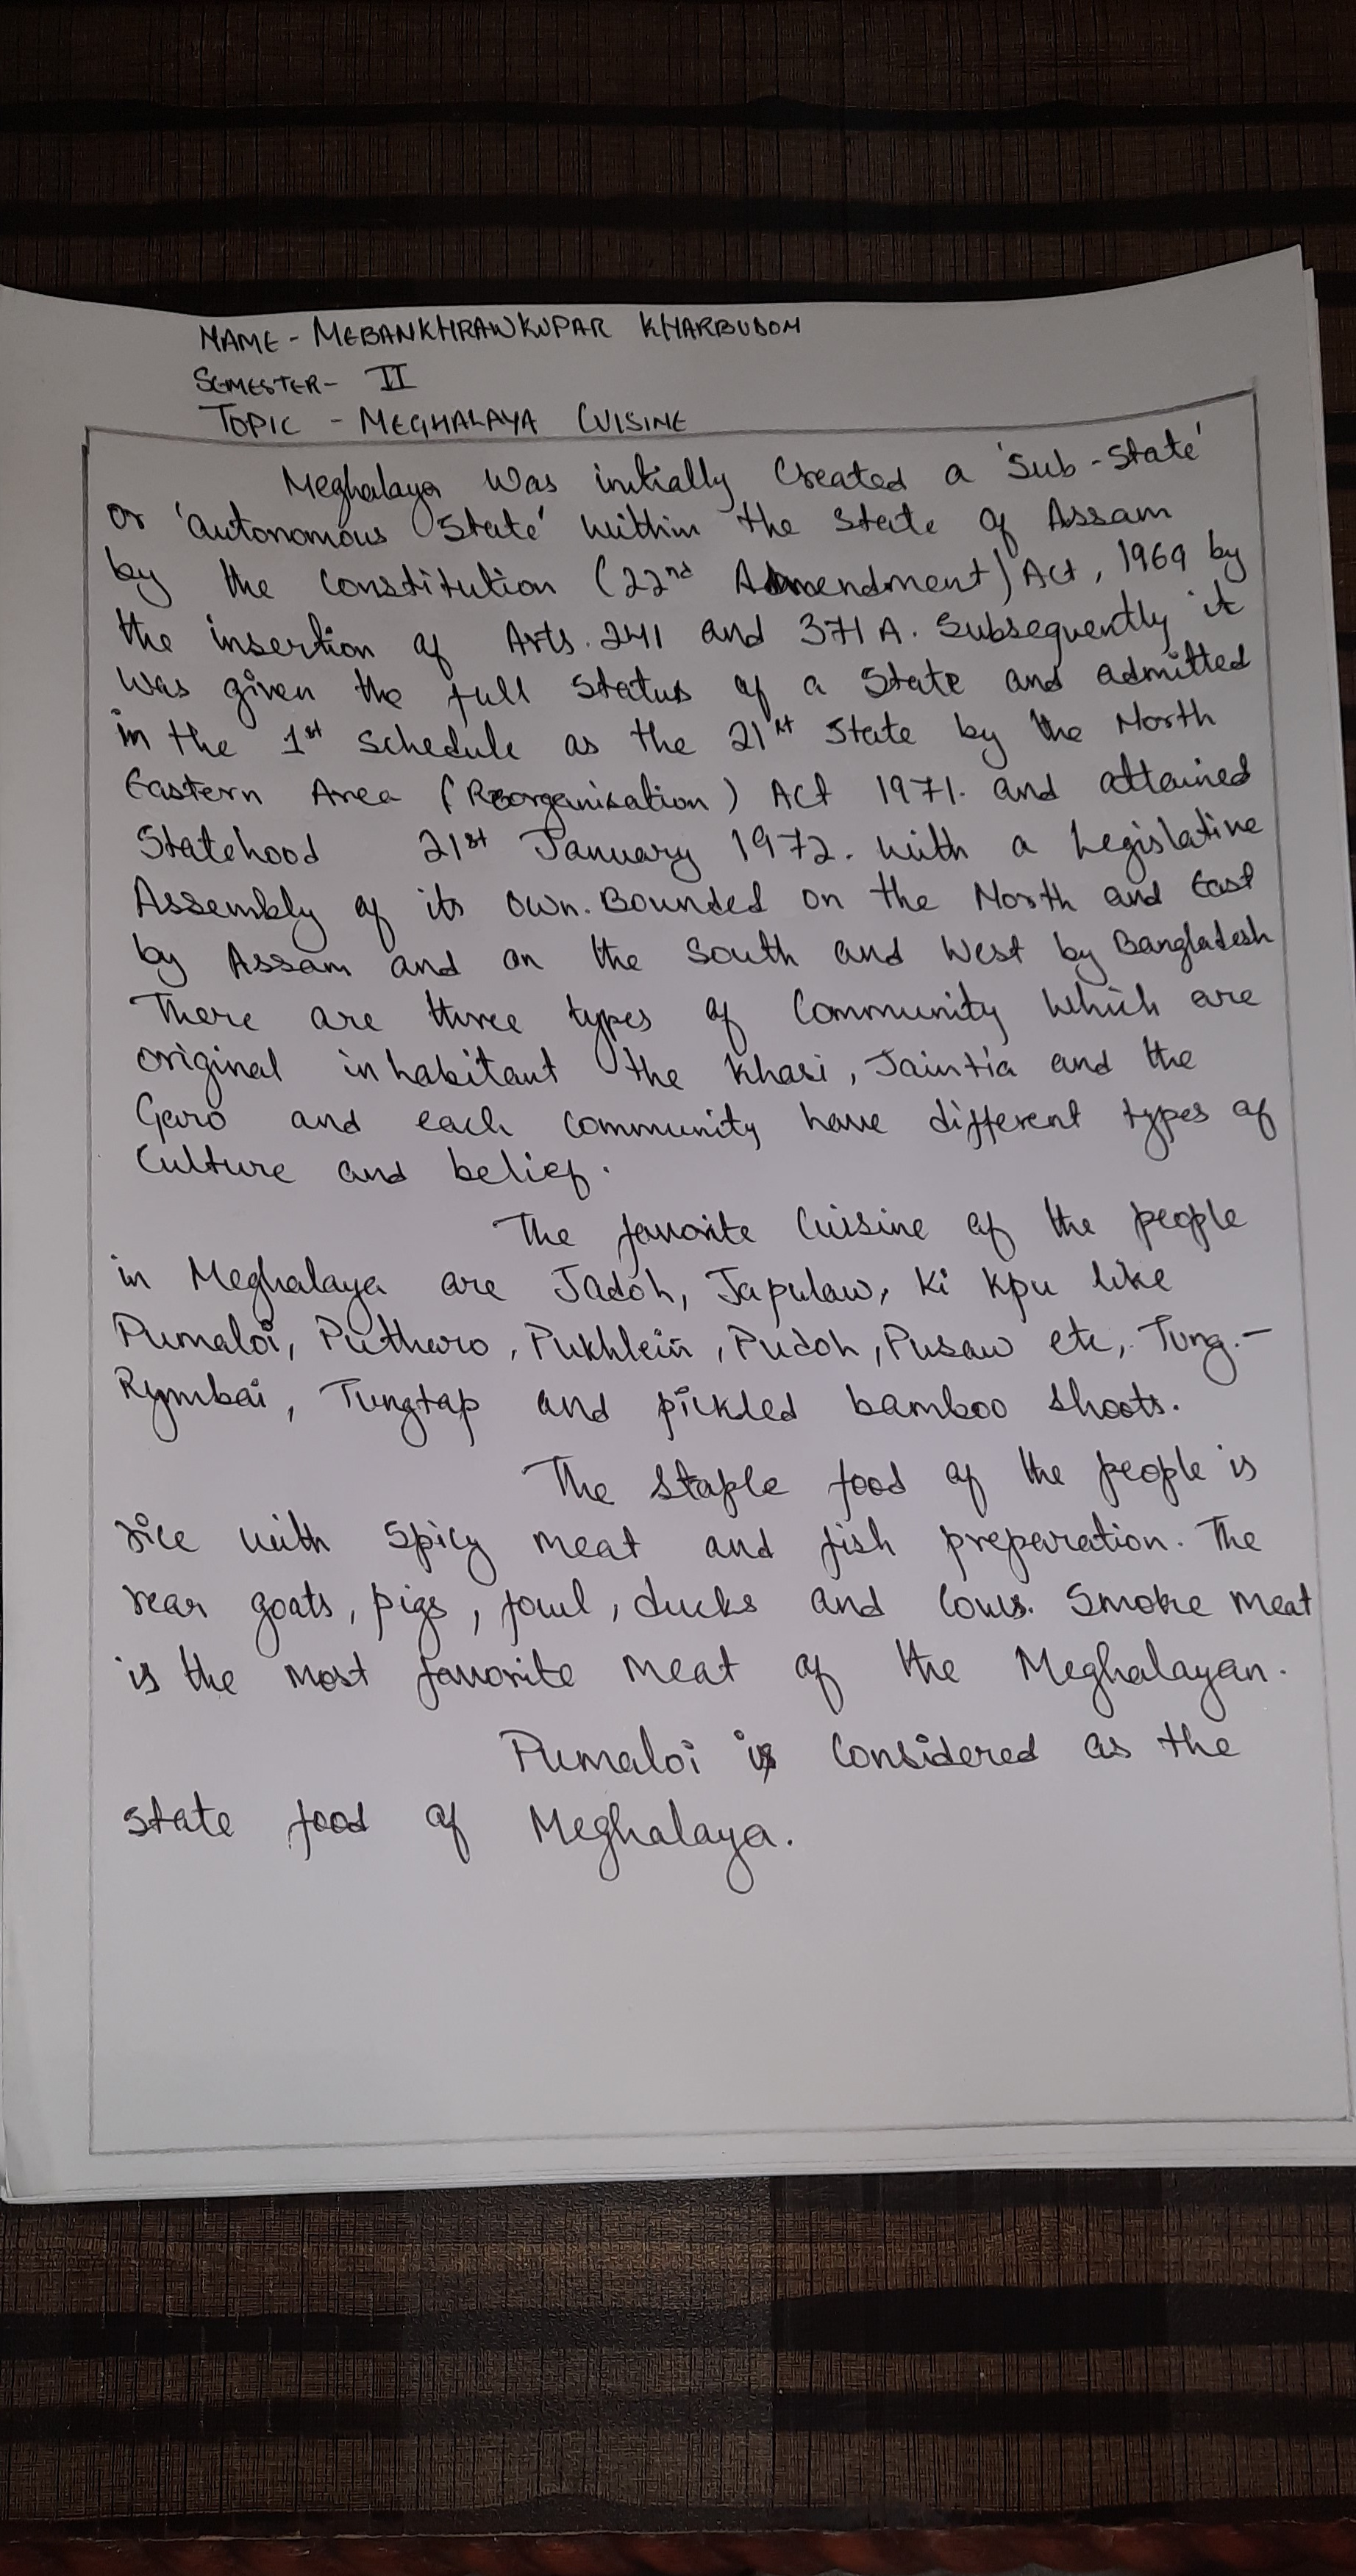 NAME - MEBANKHRAWKUPAR KHARBUDON
SEMESTER - II
TOPIC - MEGHALAYA CUISINE
Meghalaya was initially Created a 'Sub-State'
or 'autonomous State' within the State of Assam
by the constitution (22nd Amendment) Act, 1969 by
the insertion of Arts. 241 and 371 A. Subsequently it
was given the full status of a State and admitted
in the 1st schedule as the 21st State by the North
Eastern Area (Reorganisation) Act 1971. and attained
Statehood 21st January 1972. with a Legislative
Assembly of its own. Bounded on the North and East
by Assam and on the South and West by Bangladesh
There are three types of Community which are
original inhabitant the khasi, Jaintia and the
Garo and each community have different types of
Culture and belief.
The favorite Cuisine of the people
in Meghalaya are Jadoh, Japulaw, Ki Kpu like
Pumaloi, Putharo, Pukhlein, Pudoh, Pusaw etc, Tung-
Rymbai, Tungtap and pickled bamboo shoots.
The staple food of the people is
rice with spicy meat and fish preparation. The
rear goats, pigs, fowl, ducks and Cows. Smoke meat
is the most favorite meat of the Meghalayan.
Pumaloi is Considered as the
state food of Meghalaya.